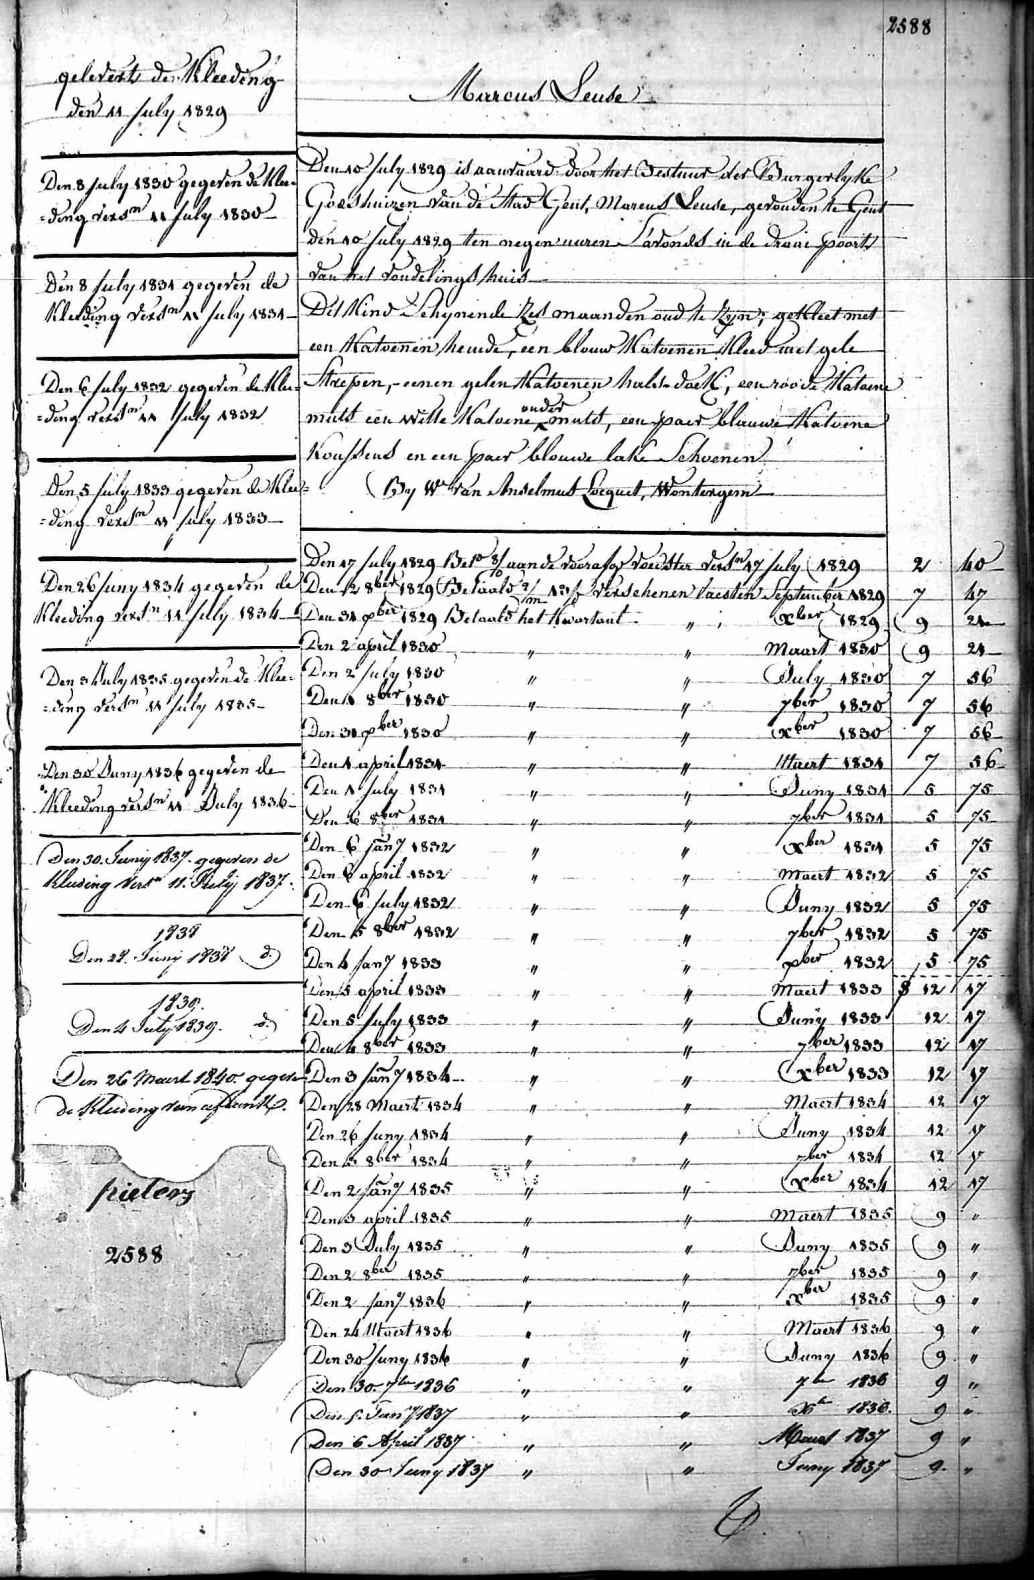 2588
gelevert de Kleeding
den 11 July 1829
Den 8 July 1830 gegeven de Klee-
=ding versn 11 July 1830
Den 8 July 1831 gegeven de
Kleeding versn 11 July 1831
Den 6 July 1832 gegeven de Klee-
=ding versn 11 July 1832
Den 5 July 1833 gegeven de Klee-
=ding versn 11 July 1833
Den 26 Juny 1834 gegeven de
Kleeding versn 11 July 1834
Den 3 July 1835 gegeven de Klee-
=ding versn 11 July 1835
Den 30 Juny 1836 gegeven de
Kleeding versn 11 July 1836
Den 30. Junij 1837. gegeven de
Kleeding versn 11. Julij 1837.
1838
Den 28. Junij 1838 d.
1839.
Den 4 July 1839. d.
Den 26 Maert 1840. gegeven
de Kleeding van
pieters
2588
Marcus Leuse
Den 10 July 1829 is aanvaard door het Bestuur der Burgerlyke
Godshuizen van de Stad Gent, Marcus Leuse, gevonden te Gent
den 10 July 1829 ten negen uuren s'avonds in de draai poort
van het vondelingshuis
Dit Kind Schynende zes maanden oud te zyn, gekleet met
een Katoenen hemde, een blouw Katoenen Kleed met gele
Streepen, eenen gelen Katoenen hals-doek, een roode Katoene
muts een witte Katoene onder muts, een paer blauwe Katoene
Koussens en een paer blouwe lake Schoenen
By We van Anselmus Locquet, Wontergem
Den 17 July 1829 aan de voedster versn 17 July 1829 2 40
Den 12 8ber 1829 Betaald verschenen laesten September 1829 7 47
Den 31 xber 1829 Betaald het Kwartaal " xber 1829 9 21
Den 2 april 1830 " " Maart 1830 9 21
Den 2 July 1830 " " July 1830 7 56
Den 1 8ber 1830 " " 7ber 1830 7 56
Den 31 xber 1830 " " xber 1830 7 56
Den 1 april 1831 " " Maert 1831 7 56
Den 1 July 1831 " " Juny 1831 5 75
Den 6 8ber 1831 " " 7ber 1831 5 75
Den 6 Jany 1832 " " xber 1831 5 75
Den 6 april 1832 " " Maert 1832 5 75
Den 6 July 1832 " " Juny 1832 5 75
Den 5 8ber 1832 " " 7ber 1832 5 75
Den 4 Jany 1833 " " xber 1832 5 75
Den 5 april 1833 " " Maert 1833 12 17
Den 5 July 1833 " " Juny 1833 12 17
Den 4 8ber 1833 " " 7ber 1833 12 17
Den 3 Jany 1834 " " xber 1833 12 17
Den 28 Maert 1834 " " Maert 1834 12 17
Den 26 Juny 1834 " " Juny 1834 12 17
Den 3 8ber 1834 " " 7ber 1834 12 17
Den 2 Jany 1835 " " xber 1834 12 17
Den 3 april 1835 " " Maert 1835 9 "
Den 3 July 1835 " " Juny 1835 9 "
Den 2 8ber 1835 " " 7ber 1835 9 "
Den 2 Jany 1836 " " xber 1835 9 "
Den 24 Maert 1836 " " Maert 1836 9 "
Den 30 Juny 1836 " " Juny 1836 9 "
Den 30. 7ber 1836 " " 7ber 1836 9 "
Den 5. Jany 1837 " " Xber 1836. 9 "
Den 6 April 1837 " " Maert 1837 9 "
Den 30 Juny 1837 " " Juny 1837 9. "